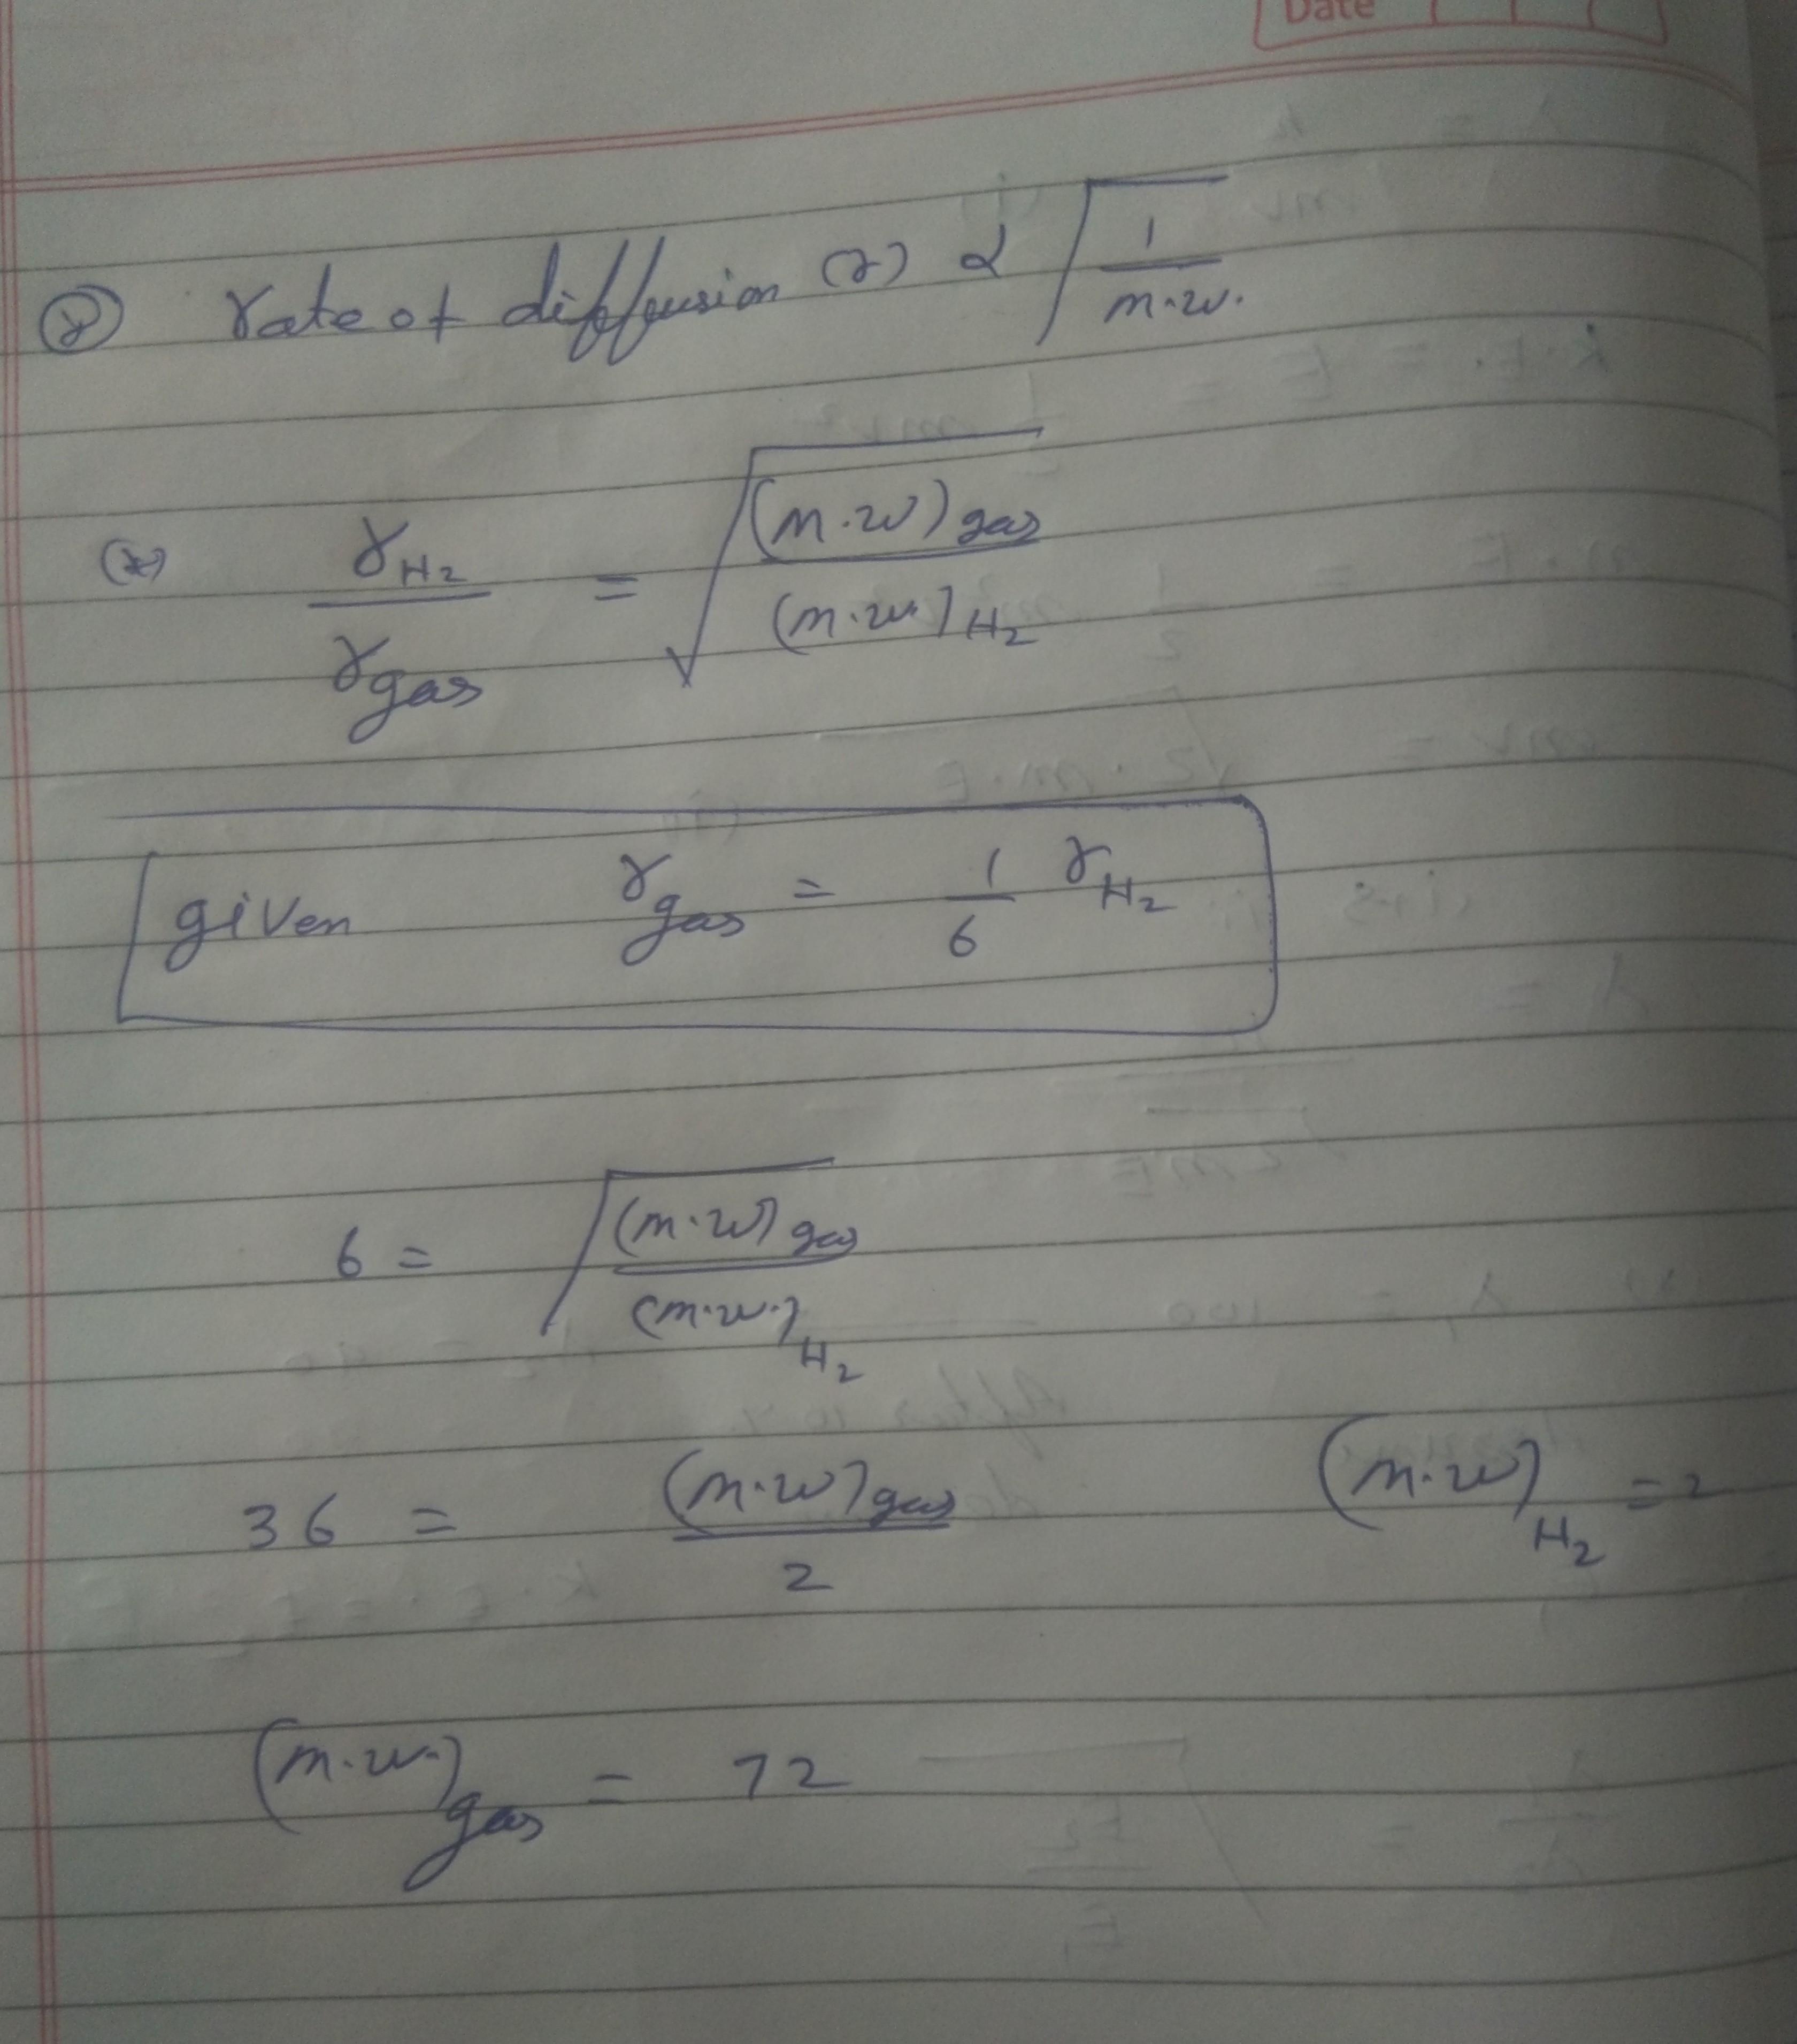 Date
rate of diffusion (r) α √(1/m.w.)
(*) r_H2 / r_gas = √((m.w)gas / (m.w.)H2)
given r_gas = 1/6 r_H2
6 = √((m.w)gas / (m.w.)H2)
36 = (m.w)gas / 2 (m.w)H2 = 2
(m.w.)gas = 72